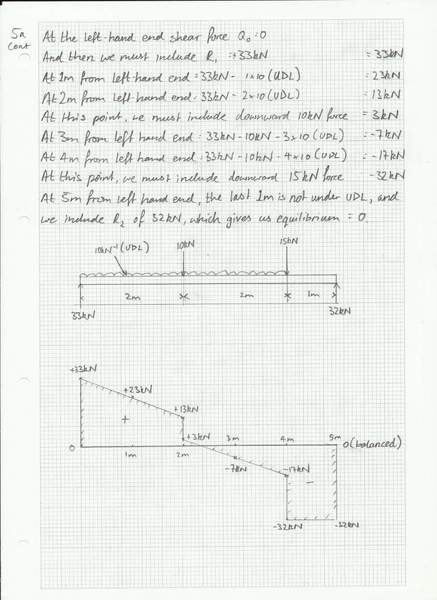 5a At the left-hand end shear force Q₀=0
cont And then we must include R₁ = +33kN = 33kN
At 1m from left-hand end = 33kN - 1x10 (UDL) = 23kN
At 2m from left-hand end = 33kN - 2x10 (UDL) = 13kN
At this point, we must include downward 10kN force = 3kN
At 3m from left hand end : 33kN - 10kN - 3x10 (UDL) = -7kN
At 4m from left hand end : 33kN - 10kN - 4x10 (UDL) = -17kN
At this point, we must include downward 15kN force -32kN
At 5m from left hand end, the last 1m is not under UDL, and
we include R₂ of 32kN, which gives us equilibrium = 0.
10kN⁻¹ (UDL) 10kN 15kN
2m 2m 1m
33kN 32kN
+33kN
+23kN
+13kN
+
+3kN 3m 4m 5m
0 0 (balanced)
1m 2m
-7kN -17kN
-
-32kN -32kN